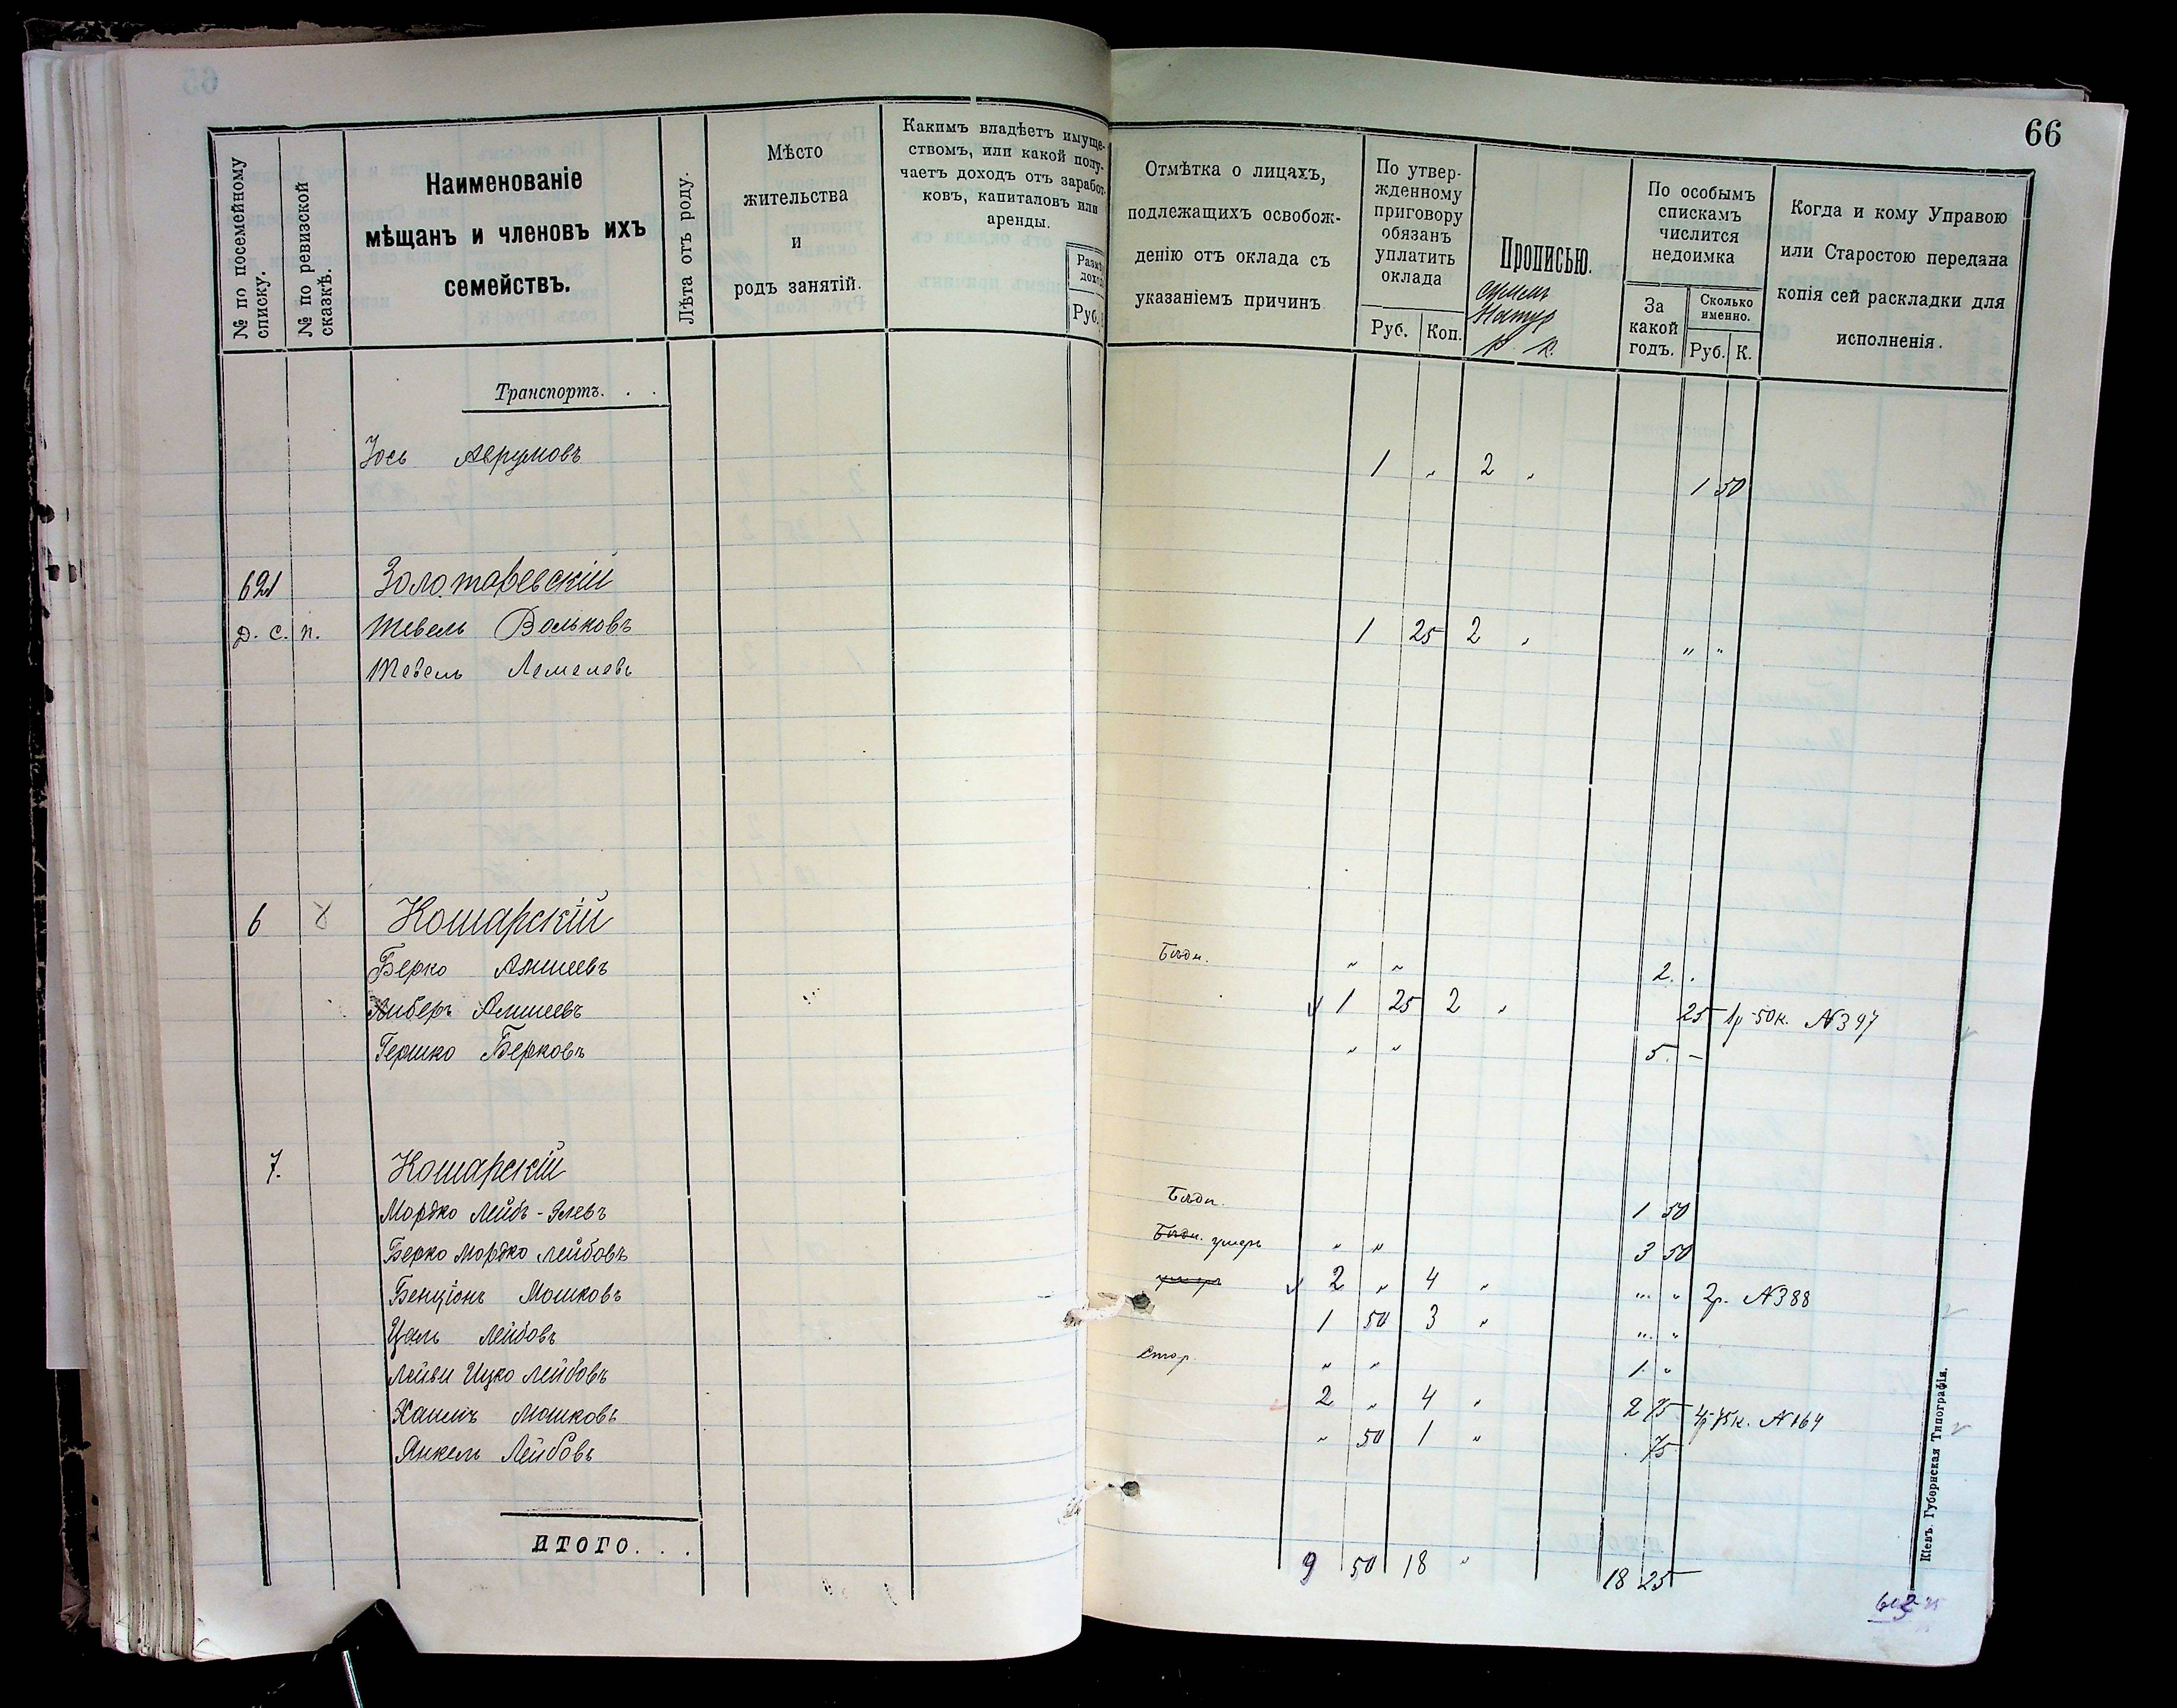 66
№ по посемейному списку.
№ по ревизской сказкѣ.
Наименованіе
мѣщанъ и членовъ ихъ
семействъ.
Лѣта отъ роду.
Мѣсто
жительства
и
родъ занятій.
Какимъ владѣетъ имуще-
ствомъ, или какой полу-
чаетъ доходъ отъ заработ-
ковъ, капиталовъ или
аренды.
Руб.
Отмѣтка о лицахъ,
подлежащихъ освобож-
денію отъ оклада съ
указаніемъ причинъ
По утвер-
жденному
приговору
обязанъ
уплатить
оклада
Руб. Коп.
Прописью.
р. к.
По особымъ
спискамъ
числится
недоимка
За
какой
годъ.
Сколько
именно.
Руб. К.
Когда и кому Управою
или Старостою передана
копія сей раскладки для
исполненія.
Транспортъ. . .
Іось Аврумовъ 1 „ 2 „ 1 50
621 Золотаревскій
Д. С. п. Тевель Вольковъ 1 25 2 „ „ „
Тевель Лемелевъ
6 Кошарскій
Берко Аншеевъ Бѣдн. „ „ 2. .
Аншеевъ 1 25 2 „ 25 1р 50к. №397
Гершко Берковъ „ „ 5. -
7. Кошарскій
Мордко Лейбъ- Бѣдн. 1 50
Берко Мордко Лейбовъ Бѣдн. умеръ „ „ 3 50
Бенціонъ Мошковъ умеръ 2 „ 4 „ „ „ 2р. №388
Цаль Лейбовъ 1 50 3 „ „ „
Ицко Лейбовъ Стар. „ „ 1 „
Хаимъ Мошковъ 2 „ 4 „ 2 75 4р 75к. №164
Янкель Лейбовъ „ 50 1 „ 75
ИТОГО. . . 9 50 18 „ 18 25
Кіевъ. Губернская Типографія.